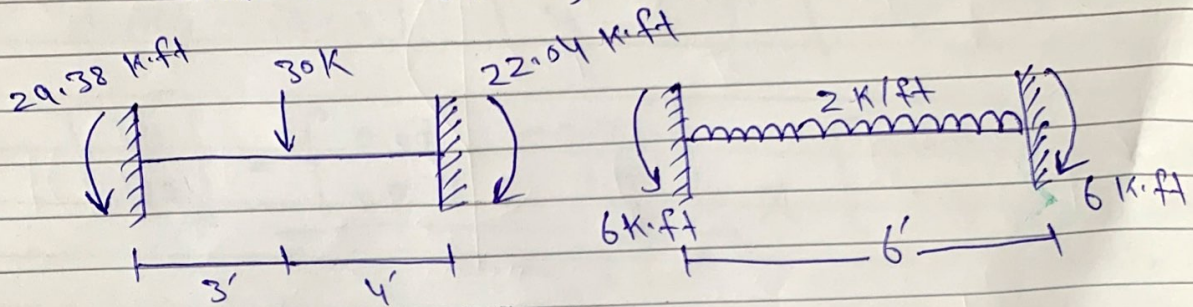 29.38 K.ft
30K
22.04 K.ft
2 K/ft
6 K.ft
6 K.ft
3'
4'
6'